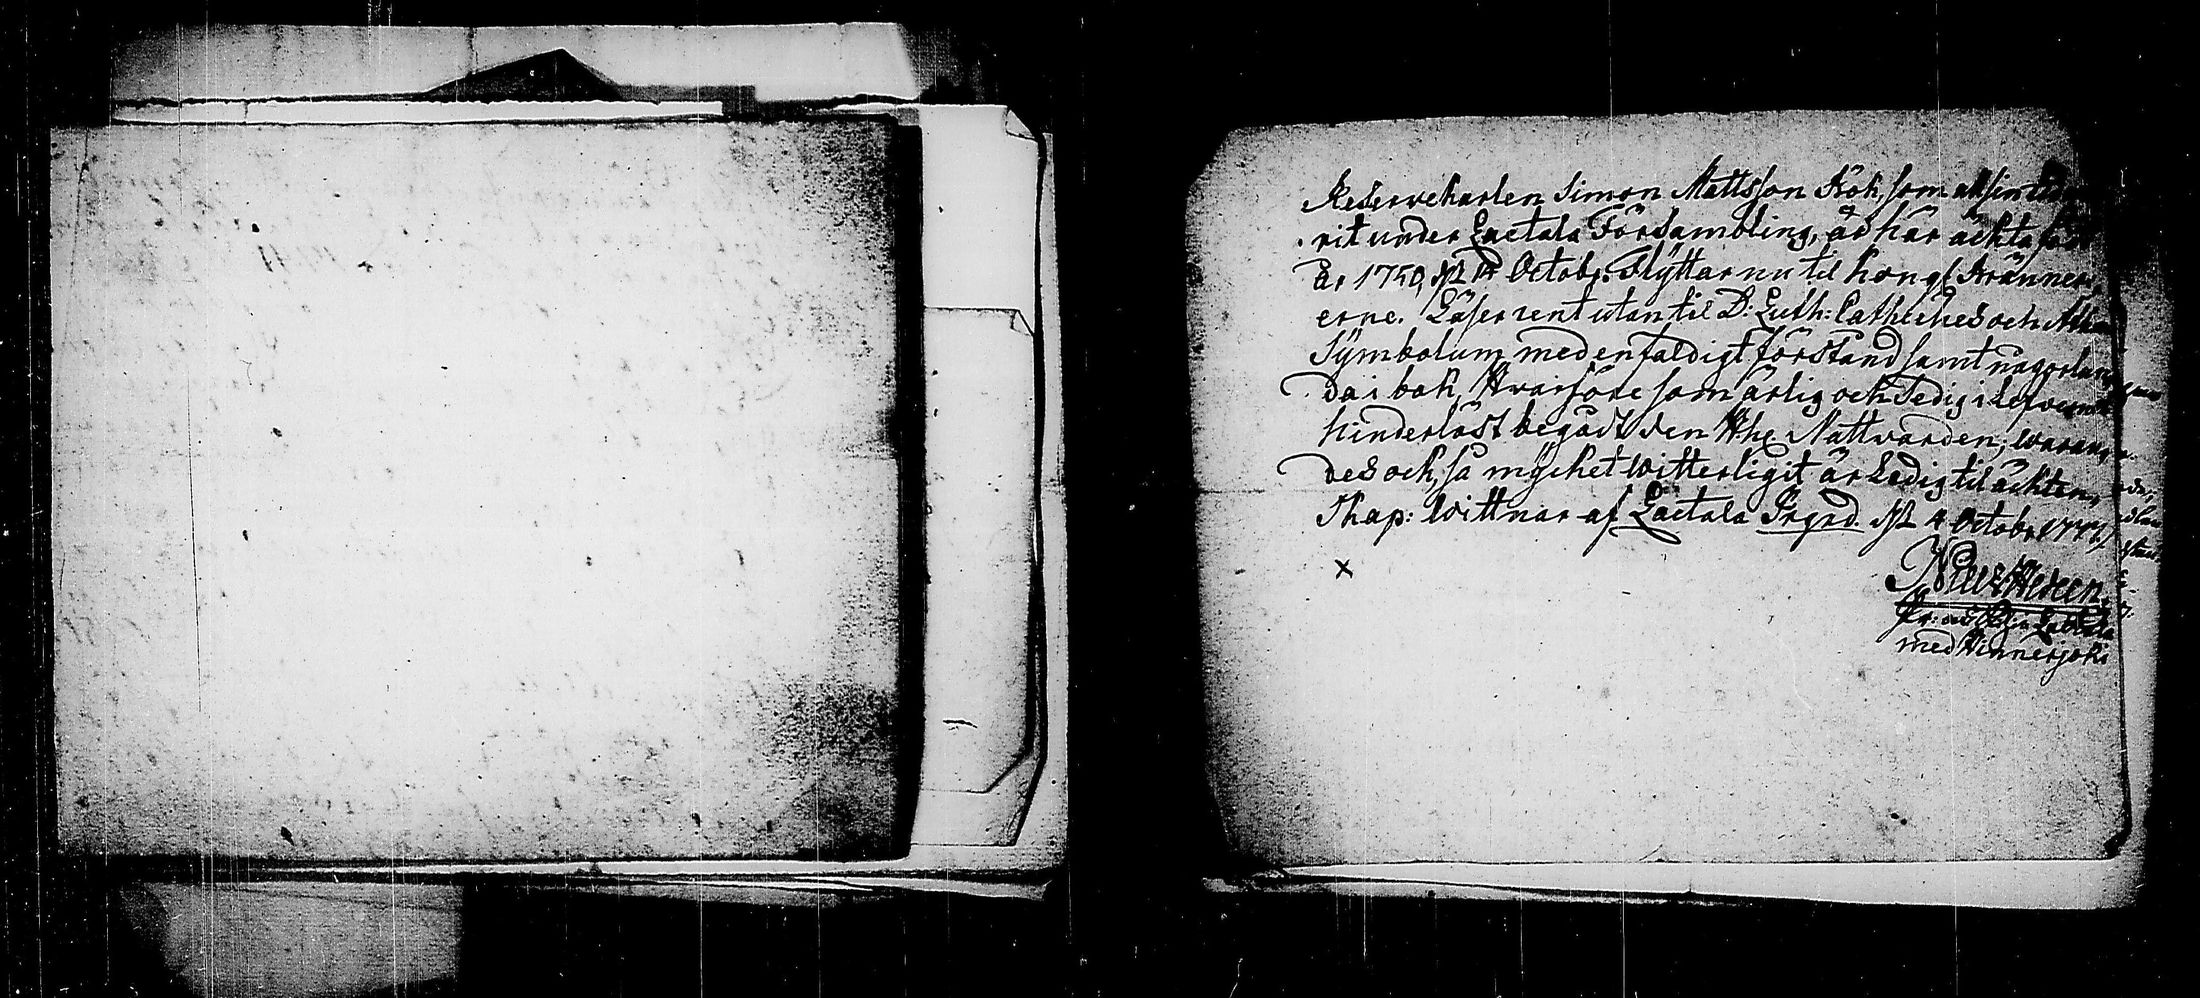 Reservekarlen Simon Mattsson Kök, som all sin tid
rit under Laetala Försambling, är här ächta föd
år 1750, d. 14 Octobr. Flyttar nu til Kongl.
erne. Läser rent utan til D: Luth: Cateches och Ath
Symbolum med enfaldigt förstånd samt någorlun
da i bok, Hvarföre som ärlig och sedig i lefverne
hinderlöst begådt den H:he Nattvarden; waran
des och, så mycket witterligit är Ledig til ächten,
skap: Wittnar af Laetala Prgrd. d. 4 Octobr 1777
Nils
med Hinnerjoki